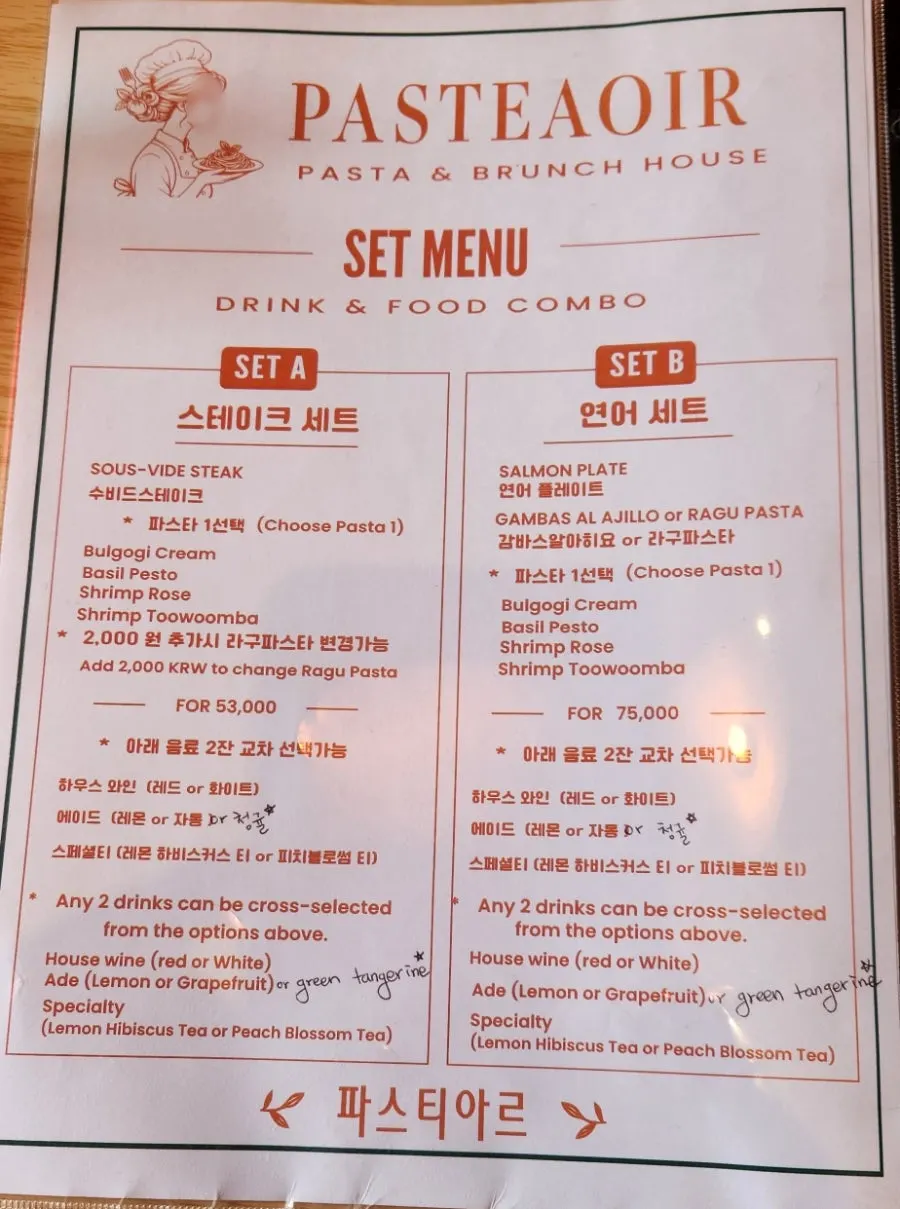 PASTEAOIR
PASTA & BRUNCH HOUSE
SET MENU
DRINK & FOOD COMBO
SET A
스테이크 세트
SOUS-VIDE STEAK
수비드스테이크
* 파스타 1선택 (Choose Pasta 1)
Bulgogi Cream
Basil Pesto
Shrimp Rose
Shrimp Toowoomba
* 2,000 원 추가시 라구파스타 변경가능
Add 2,000 KRW to change Ragu Pasta
FOR 53,000
* 아래 음료 2잔 교차 선택가능
하우스 와인 (레드 or 화이트)
에이드 (레몬 or 자몽 or 청귤*
스페셜티 (레몬 하비스커스 티 or 피치블로썸 티)
* Any 2 drinks can be cross-selected
from the options above.
House wine (red or White)
Ade (Lemon or Grapefruit) or green tangerine*
Specialty
(Lemon Hibiscus Tea or Peach Blossom Tea)
SET B
연어 세트
SALMON PLATE
연어 플레이트
GAMBAS AL AJILLO or RAGU PASTA
감바스알아히요 or 라구파스타
* 파스타 1선택 (Choose Pasta 1)
Bulgogi Cream
Basil Pesto
Shrimp Rose
Shrimp Toowoomba
FOR 75,000
* 아래 음료 2잔 교차 선택가능
하우스 와인 (레드 or 화이트)
에이드 (레몬 or 자몽 or 청귤*
스페셜티 (레몬 하비스커스 티 or 피치블로썸 티)
* Any 2 drinks can be cross-selected
from the options above.
House wine (red or White)
Ade (Lemon or Grapefruit) or green tangerine*
Specialty
(Lemon Hibiscus Tea or Peach Blossom Tea)
파스티아르